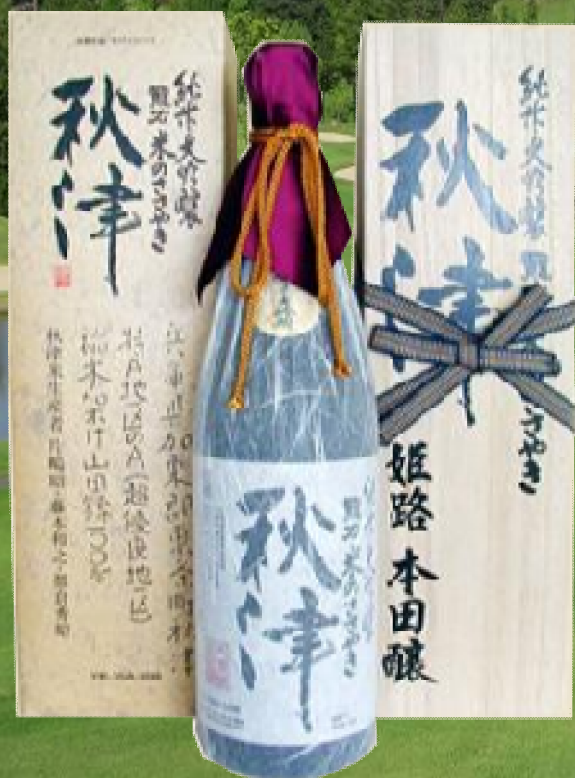 純米大吟醸
龍力 米のささやき
秋津
兵庫県加東郡東条町秋津
特A地区のA(超優良地区)
稲木架け山田錦100%
秋津米生産者
純米大吟醸
龍力 米のささやき
秋津
純米大吟醸 龍
さやき
秋津
姫路 本田醸